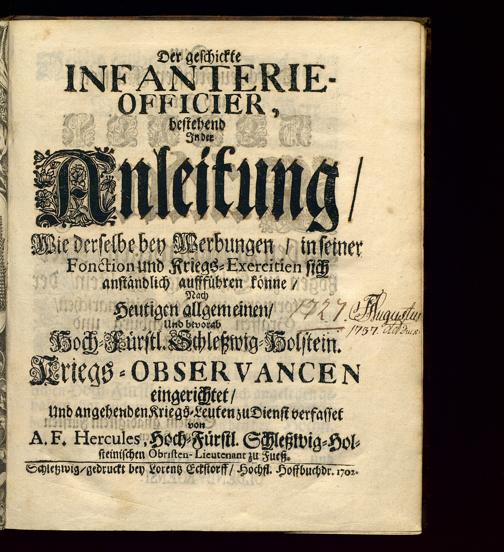 Der geschickte
INFANTERIE-
OFFICIER,
bestehend
In der
Anleitung/
Wie derselbe bey Werbungen / in seiner
Fonction und Kriegs-Exercitien sich
anständlich auffführen könne/
Nach
Heutigen allgemeinen/
Und bevorab
Hoch-Fürstl. Schleßwig-Holstein.
Kriegs-OBSERVANCEN
eingerichtet/
Und angehenden Kriegs-Leuten zu Dienst verfasset
von
A. F. Hercules, Hoch-Fürstl. Schleßwig-Hol-
steinischen Obristen-Lieutenant zu Fueß.
Schleßwig/gedruckt bey Lorentz Eckstorff/ Hochfl. Hoffbuchdr. 1702.
1727. Augustus
1737.